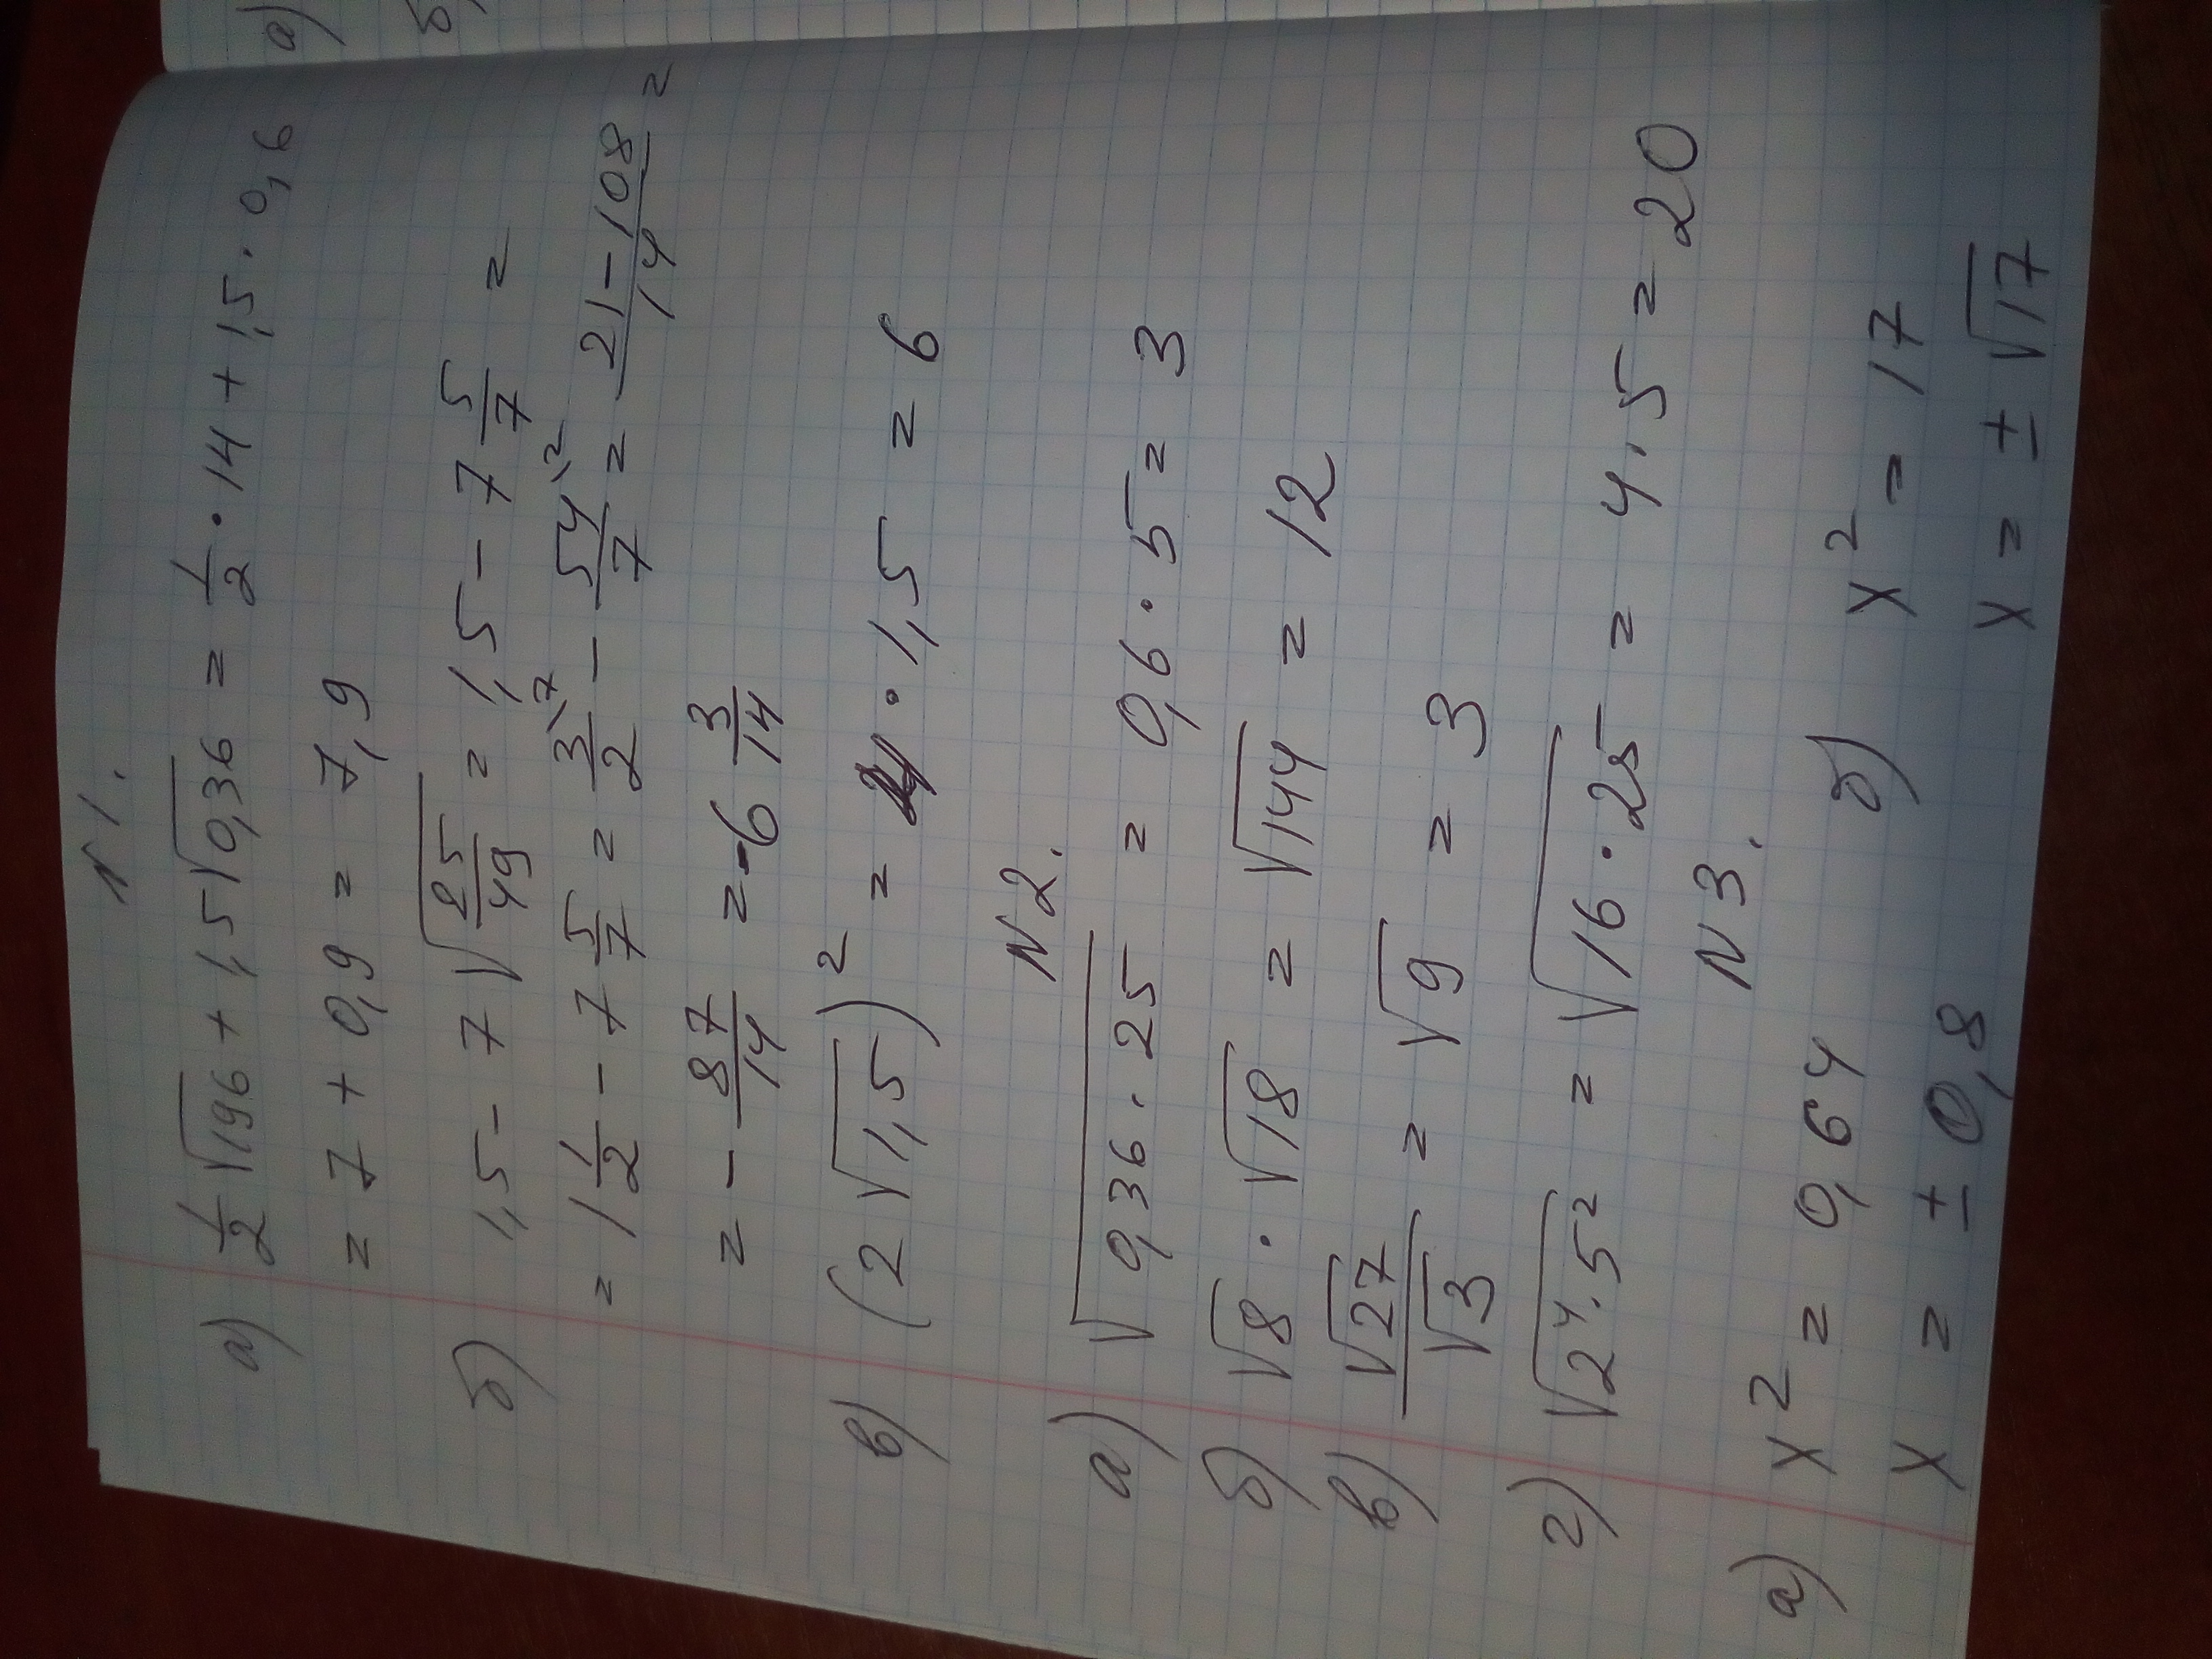 N 1.
а) 1/2 √196 + 1,5 √0,36 = 1/2 · 14 + 1,5 · 0,6
= 7 + 0,9 = 7,9
б) 1,5 - 7 √(25/49) = 1,5 - 7 5/7 =
= 1 1/2 - 7 5/7 = 3/2 \7 - 54/7 \2 = (21 - 108)/14 =
= - 87/14 = -6 3/14
в) (2 √1,5)² = 4 · 1,5 = 6
N 2.
а) √(0,36 · 25) = 0,6 · 5 = 3
б) √8 · √18 = √144 = 12
в) √27/√3 = √9 = 3
г) √(2⁴ · 5²) = √(16 · 25) = 4 · 5 = 20
N 3.
а) x² = 0,64 б) x² = 17
x = ± 0,8 x = ± √17
а)
б)